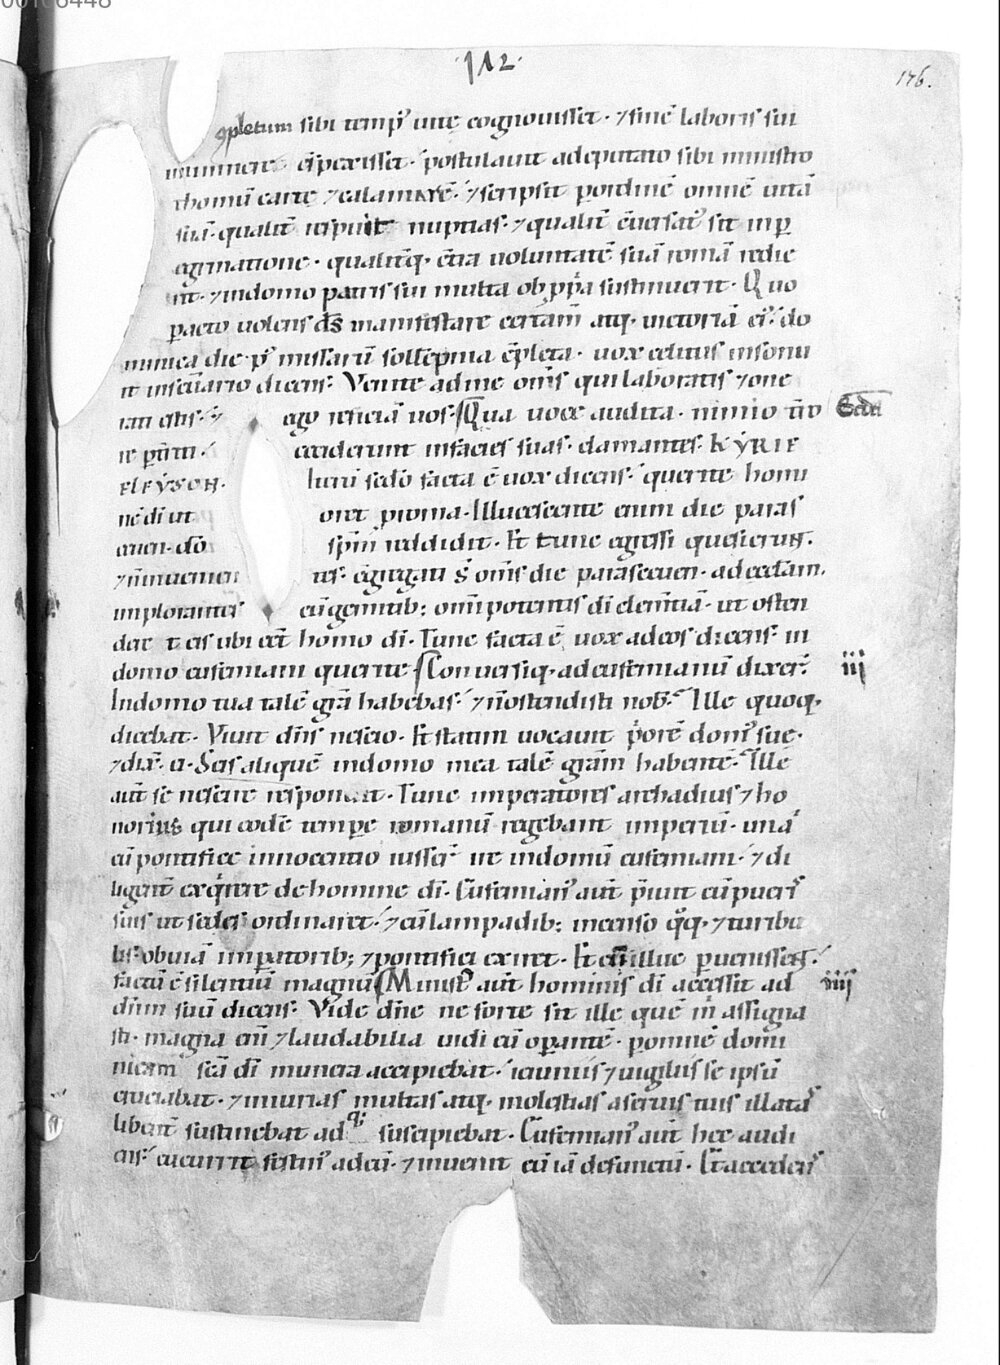 ·112·
176.
9pletum sibi temp᷒ uitę cognouisset · ⁊ finē laboris sui
munimere
thomū carte ⁊ calamarē · ⁊ scripsit p ordinē omnē uitā
suā · qualit̄ respuit nuptias · ⁊ qualit̄ c̄uersat᷒ sit in p
egrinatione · qualit̄q · c̄tra uoluntatē suā romā redie
rit · ⁊ in domo patris sui multa obppria sustinuerit · Quo
pacto uolens d̄s manifestare certam̄ atq · uictoriā ei᷒ · do
minica die · p᷒ missarū sollēpnia c̄pleta · uox celitus insonu
it in sc̄uario dicens · Venite ad me om̄s qui laboratis ⁊ one
rati estis · ⁊ ego reficiā uos · Qua uoce audita · nimio t̄ro Scda
re p̄territi · ceciderunt in facies suas · clamantes · KYRIE
ELEYSON · Iteru sedo facta ē uox dicens · querite homi
nē di ut oret p roma · Illucescente enim die paras
ceuen · dō sp̄m reddidit · Et tunc egressi quesierunt ·
⁊ n̄ inuenien tes · c̄gregati s̄ om̄s die parasceuen · ad eccłam ·
implorantes cū gemitib; omnipotentis di clem̄tiā · ut osten
deret eis ubi eēt homo di · Tunc facta ē uox ad eos dicens · in
domo eufemiani querite Conuersiq · ad eufemianū dixer̄ · iij
In domo tua talē grā habebas · ⁊ n̄ ostendisti nob · Ille quoq ·
dicebat · Viuit dn̄s nescio · Et statim uocauit p᷒orē dom᷒ suę ·
⁊ dix̄ · ei · Scis aliquē in domo mea talē grām habentē · Ille
aut̄ se nescire respondit · Tunc imperatores archadius ⁊ ho
norius qui eodē tempe romanū regebant imperiū · una
cū pontifice innocentio iusser̄ ire in domū eufemiani · ⁊ di
ligent̄ exq̇rere de homine di · Eufemian᷒ aut̄ p̄iuit cū pueris
suis ut sedes ordinaret · ⁊ cū lampadib; incenso q̊q · ⁊ turibu
lis · obuiā imp̄atorib; ⁊ pontifici exiret · Et cū illuc p uenissent ·
factū ē silentiū magnū Minist᷒ aut̄ hominis di accessit ad iiij
dn̄m suū dicens · Vide dn̄e ne forte sit ille quē m̄ assigna
sti · magna eni ⁊ laudabilia uidi eū op̄antē · p omnē domi
nicam sc̄a di munera accipiebat · ieiuniis ⁊ uigiliis se ipsū
cruciabat · ⁊ iniurias multas atq · molestias a seruis tuis illatas
libent̄ sustinebat ad q; suscipiebat · Eufemian᷒ aut̄ hec audi
ens · cucurrit festin᷒ ad eū · ⁊ inuenit eū iā defunctū · Et accedens